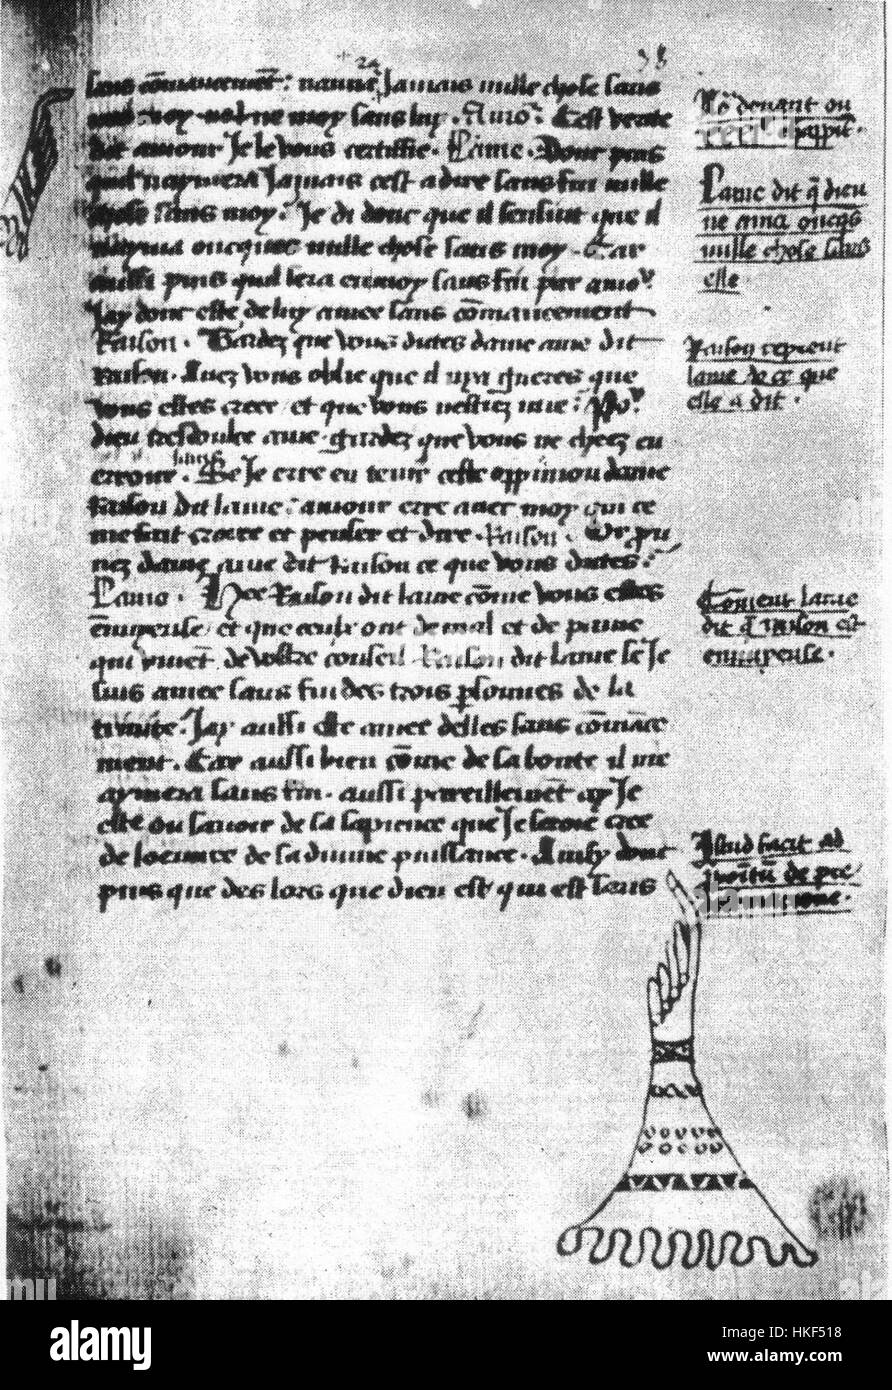 + 24
38
sans cõmancemẽt : nanne Jamais nulle chose sans
moy ne moy sans luy . Amoʳ . Cest verite
dit amour Je le vous certiffie . Lame . Donc puis
quil naymera Jamais cest a dire sans fin nulle
chose sans moy . Je di donc que il sensuit que il
nayma oncques nulle chose sans moy . Car
aussi puis quil sera en moy sans fin par amoʳ
Jay donc este de luy amee sans cõmancement
Raison . Gardez que vous dictes dame ame dit
Raison . Avez vous oblie que il nya gueres que
vous estes creee et que vous nestiez mie : Poʳ
dieu tresdoulce ame . gardez que vous ne cheez en
erreur . Se Je erre en tenir ceste oppinion dame
Raison dit lame : amour erre avec moy qui ce
me fait croire et penser et dire . Raison . Or pu
nez dame ame dit Raison ce que vous dictes .
Lame . Hee Raison dit lame cõme vous estes
ẽnuyeuse et que ceulx ont de mal et de paine
qui vivẽt de vostre conseil . Raison dit lame se Je
suis amee sans fin des trois ꝑsonnes de la
trinite . Jay aussi este amee delles sans cõmãce
ment . Car aussi bien cõme de sa bonte il me
aymera sans fin . aussi pareillemẽt ay Je
este ou savoir de sa sapience que Je seroie creee
de loeuvre de sa divine puissance . Ainsy donc
puis que des lors que dieu est qui est sans
devant ou
chappit .
Lame dit q̃ dieu
ne ama oncqs
nulle chose sans
elle .
Raison reprent
lame de ce que
elle a dit .
Cõment lame
dit q̃ raison est
ennuyeuse .
Istud facit ad
de pre
alamy
alamy
Image ID: HKF518
www.alamy.com